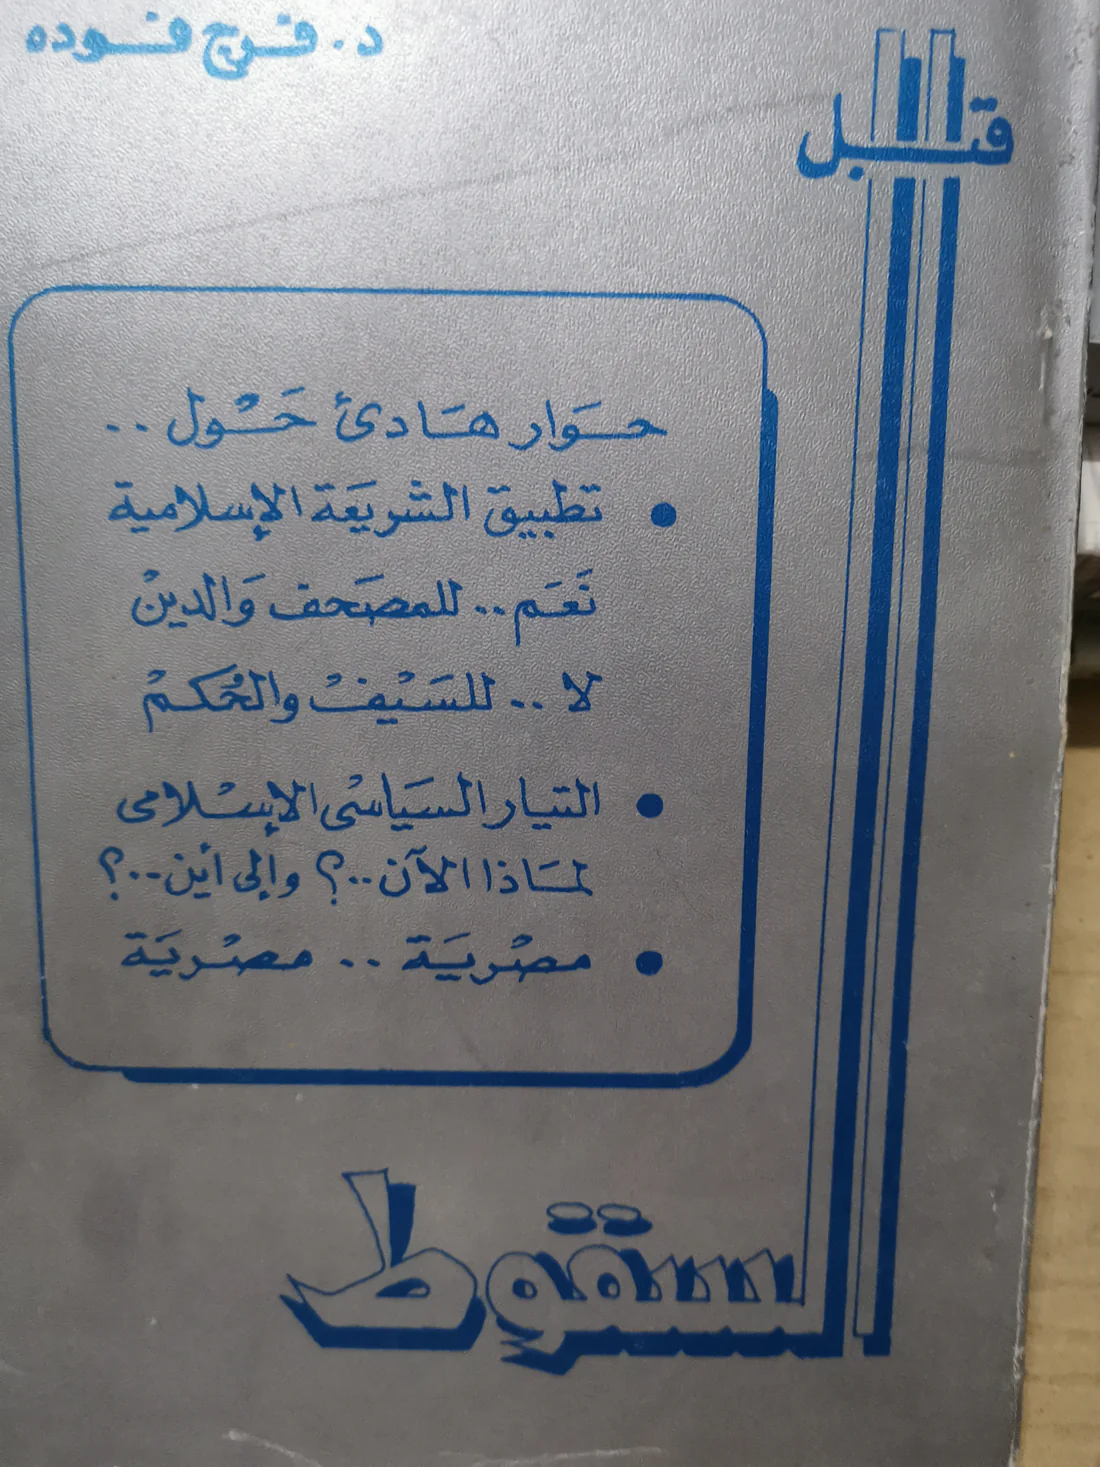 د. فرج فوده
قبل
حَوار هَادئ حَوْل ..
• تطبيق الشريعَة الإسلامية
نَعَم .. للمصَحف وَالدين
لا .. للسَيْفْ والحُكمْ
• التيار السَياسْى الإسْلامى
لمَاذا الآن ..؟ وإلى أين ..؟
• مصْريَة .. مصْريَة
السقوط